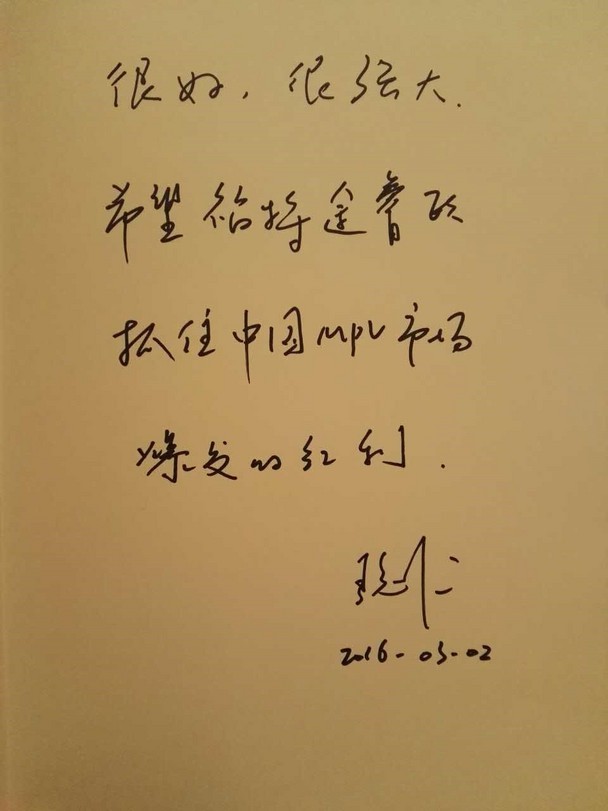 很好，很强大.
希望福特途睿欧
抓住中国MPV市场
爆发的红利.
2016-03-02